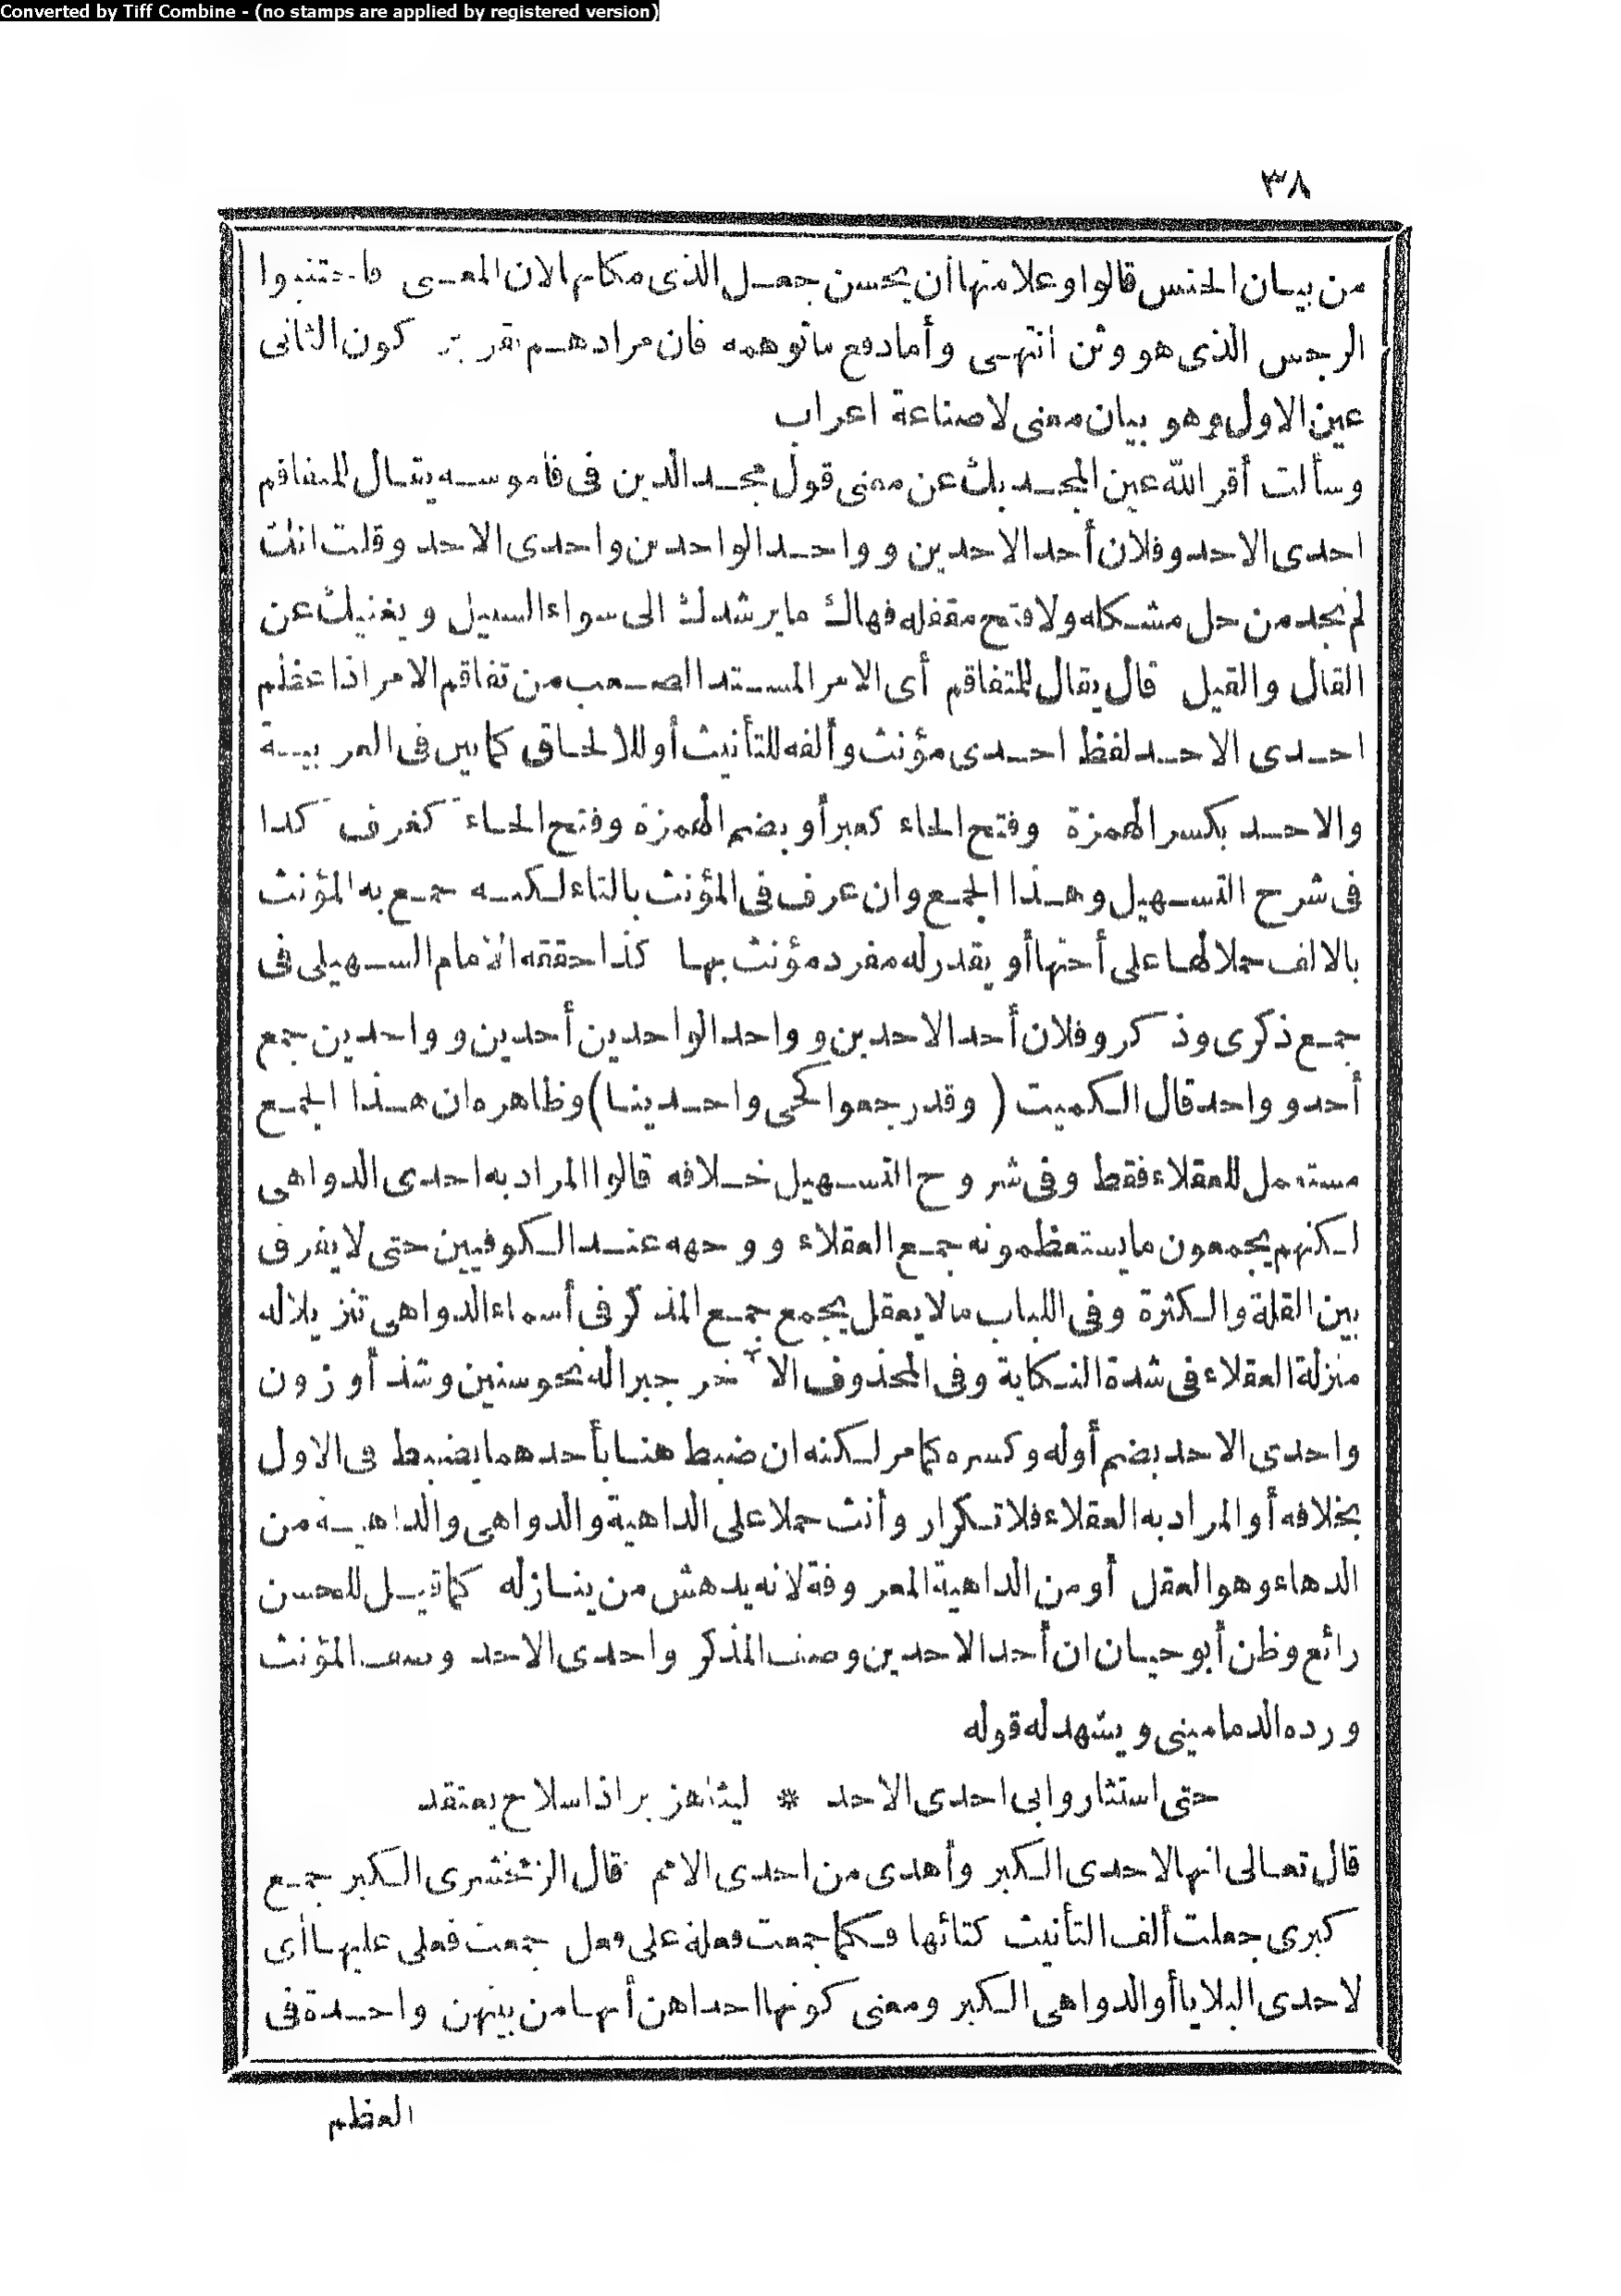 Converted by Tiff Combine - (no stamps are applied by registered version)
٣٨
من بيان الجنس قالوا وعلامتها أن يحسن جعل الذى مكانها لان المعنى فاجتنبوا
الرجس الذى هو وثن انتهى وأما دفع ماتوهمه فان مرادهم تقرير كون الثانى
عين الاول وهو بيان معنى لا صناعة اعراب
وسألت أقر الله عين المجد بك عن معنى قول مجد الدين فى قاموسه يقال للمتفاقم
احدى الاحد وفلان أحد الاحدين وواحد الواحدين واحدى الاحد وقلت انك
لم تجد من حل مشكله ولا فتح مقفله فهاك مايرشدك الى سواء السبيل ويغنيك عن
القال والقيل قال يقال للمتفاقم أى الامر المشتد الصعب من تفاقم الامر اذا عظم
احدى الاحد لفظ احدى مؤنث وألفه للتأنيث أو للالحاق كما بين فى العربية
والاحد بكسر الهمزة وفتح الحاء كعبر أو بضم الهمزة وفتح الحاء كغرف كذا
فى شرح التسهيل وهذا الجمع وان عرف فى المؤنث بالتاء لكنه جمع به المؤنث
بالالف حملا لها على أختها أو يقدر له مفرد مؤنث بها كذا حققه الامام السهيلى فى
جمع ذكرى وذكر وفلان أحد الاحدين وواحد الواحدين أحدين وواحدين جمع
أحد وواحد قال الكميت ( وقد رجعوا كحى واحدينا) وظاهره ان هذا الجمع
مستعمل للعقلاء فقط وفى شروح التسهيل خلافه قالوا المراد به احدى الدواهى
لكنهم يجمعون ما يستعظمونه جمع العقلاء ووجهه عند الكوفيين حتى لا يفرق
بين القلة والكثرة وفى اللباب مالا يعقل يجمع جمع المذكر فى أسماء الدواهى تنزيلا له
منزلة العقلاء فى شدة النكاية وفى المحذوف الآخر جبرا له نحو سنين وشذ أوزون
واحدى الاحد بضم أوله وكسره كما مر لكنه ان ضبط هنا بأحدهما يضبط فى الاول
بخلافه أو المراد به العقلاء فلا تكرار وأنث حملا على الداهية والدواهى والداهية من
الدهاء وهو العقل أو من الداهية المعروفة لانه يدهش من ينازله كما قيل للحسن
رائع وظن أبو حيان ان أحد الاحدين وصف المذكر واحدى الاحد وصف المؤنث
ورده الدمامينى ويشهد له قوله
حتى استثاروا بى احدى الاحد * ليثا هزبرا ذا سلاح يعتقد
قال تعالى انها لاحدى الكبر وأهدى من احدى الامم قال الزمخشرى الكبر جمع
كبرى جعلت ألف التأنيث كتائها فكما جمعت فعلة على فعل جمعت فعلى عليها أى
لاحدى البلايا أو الدواهى الكبر ومعنى كونها احداهن أنها من بينهن واحدة فى
العظم